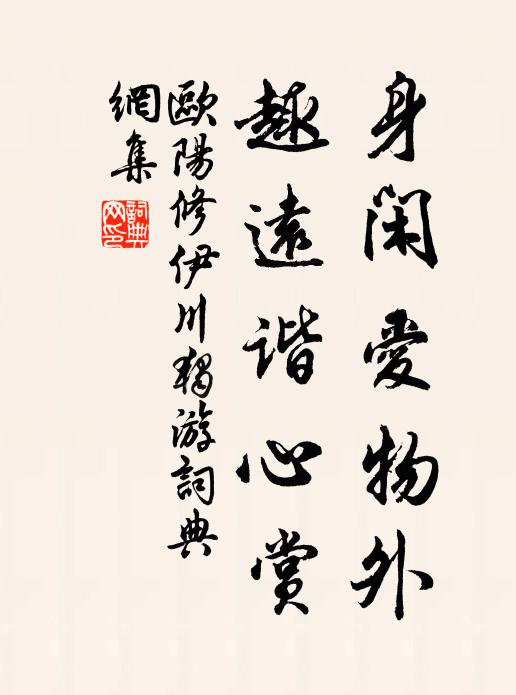 身閑愛物外
趣遠諧心賞
歐陽修伊川獨游詞典
網集
詞典網印